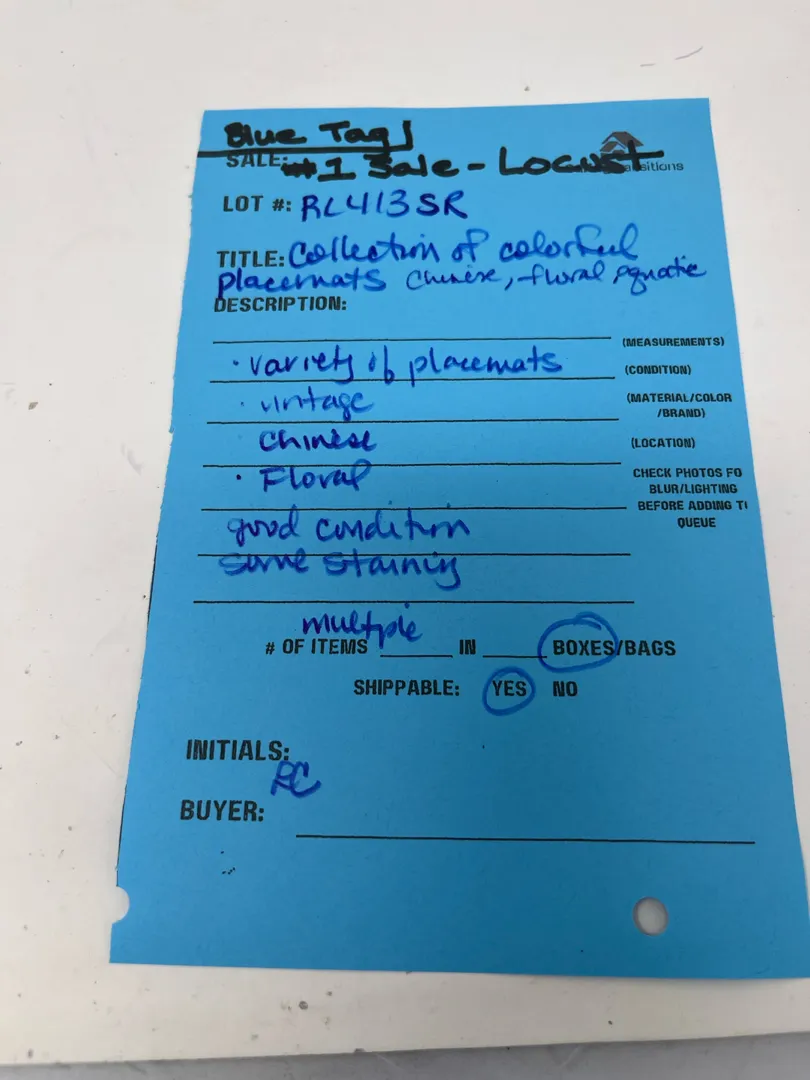 Blue Tag
SALE: #1 Sale - Locust
sitions
LOT #: RL413SR
TITLE: Collection of colorful
placemats Chinese, floral aquatic
DESCRIPTION:
(MEASUREMENTS)
· variety of placemats
(CONDITION)
· vintage
(MATERIAL/COLOR
/BRAND)
Chinese
(LOCATION)
· Floral
CHECK PHOTOS FO
BLUR/LIGHTING
BEFORE ADDING T
QUEUE
good condition
some staining
# OF ITEMS multiple IN BOXES/BAGS
SHIPPABLE: YES NO
INITIALS:
RC
BUYER: